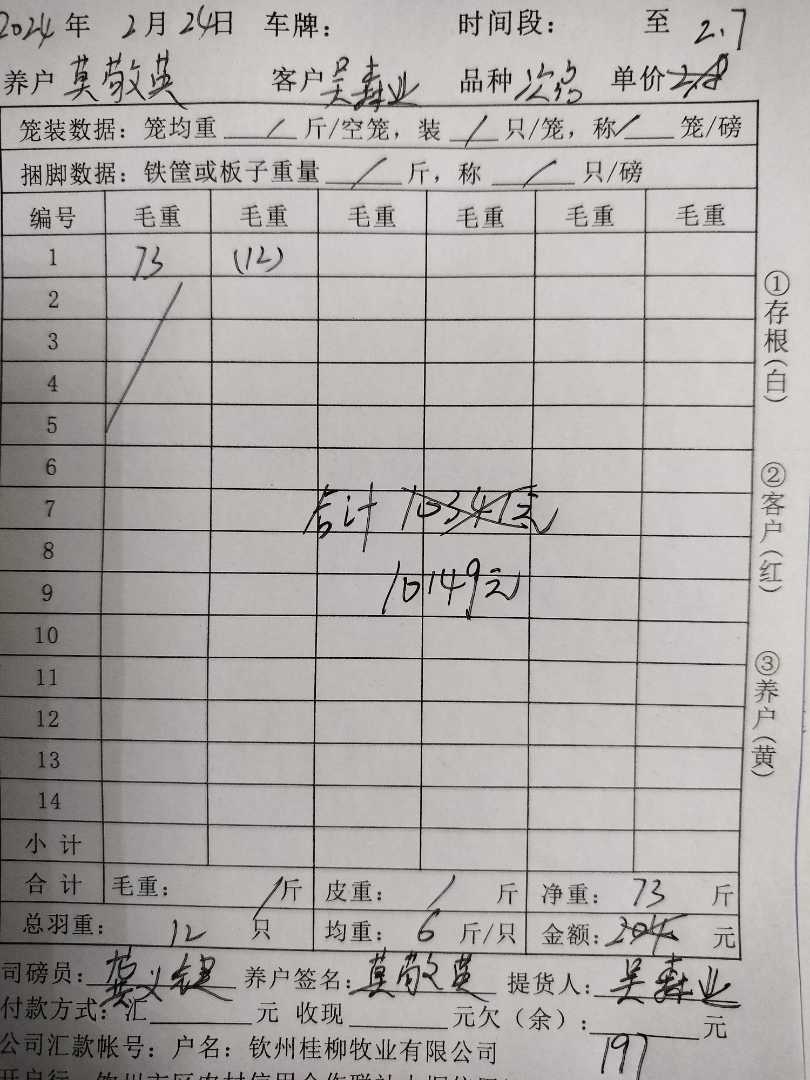 2024 年 2 月 24 日 车牌： 时间段： 至 2.7
养户 莫敬英 客户 吴森业 品种 次鸟 单价 2.8
笼装数据：笼均重 / 斤/空笼，装 / 只/笼，称 / 笼/磅
捆脚数据：铁筐或板子重量 / 斤，称 / 只/磅
编号 毛重 毛重 毛重 毛重 毛重 毛重
1 73 (12)
2
3
4
5
6
7 合计 10341元
8
9 10149元
10
11
12
13
14
小 计
合 计 毛重： / 斤 皮重： / 斤 净重： 73 斤
总羽重： 12 只 均重： 6 斤/只 金额： 204 元
司磅员： 养户签名：莫敬英 提货人：吴森业
付款方式：汇 元 收现 元欠（余）： 元
197
公司汇款帐号：户名：钦州桂柳牧业有限公司
①存根（白） ②客户（红） ③养户（黄）